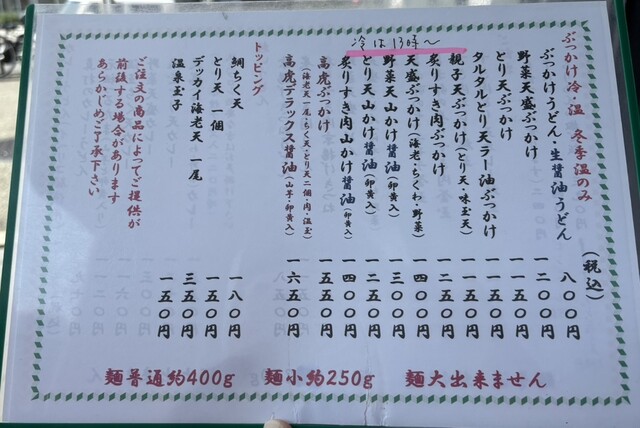 冷は13時〜
ぶっかけ冷・温 冬季温のみ
(税込)
ぶっかけうどん・生醤油うどん 八〇〇円
野菜天盛ぶっかけ 一二〇〇円
とり天ぶっかけ 一一五〇円
タルタルとり天ラー油ぶっかけ 一一五〇円
親子天ぶっかけ(とり天・味玉天) 一一五〇円
炙りすき肉ぶっかけ 一二五〇円
天盛ぶっかけ(海老・ちくわ・野菜) 一四〇〇円
野菜天山かけ醤油(卵黄入) 一三〇〇円
とり天山かけ醤油(卵黄入) 一二五〇円
炙りすき肉山かけ醤油(卵黄入) 一四〇〇円
高虎ぶっかけ 一五五〇円
(海老天一尾・ちく天・とり天二個・肉・温玉)
高虎デラックス醤油(山芋・卵黄入) 一六五〇円
トッピング
鯛ちく天 一八〇円
とり天 一個 一五〇円
デッカイ海老天 一尾 三五〇円
温泉玉子 一五〇円
ご注文の商品によってご提供が
前後する場合があります
あらかじめご了承下さい
麺普通約400g 麺小約250g 麺大出来ません